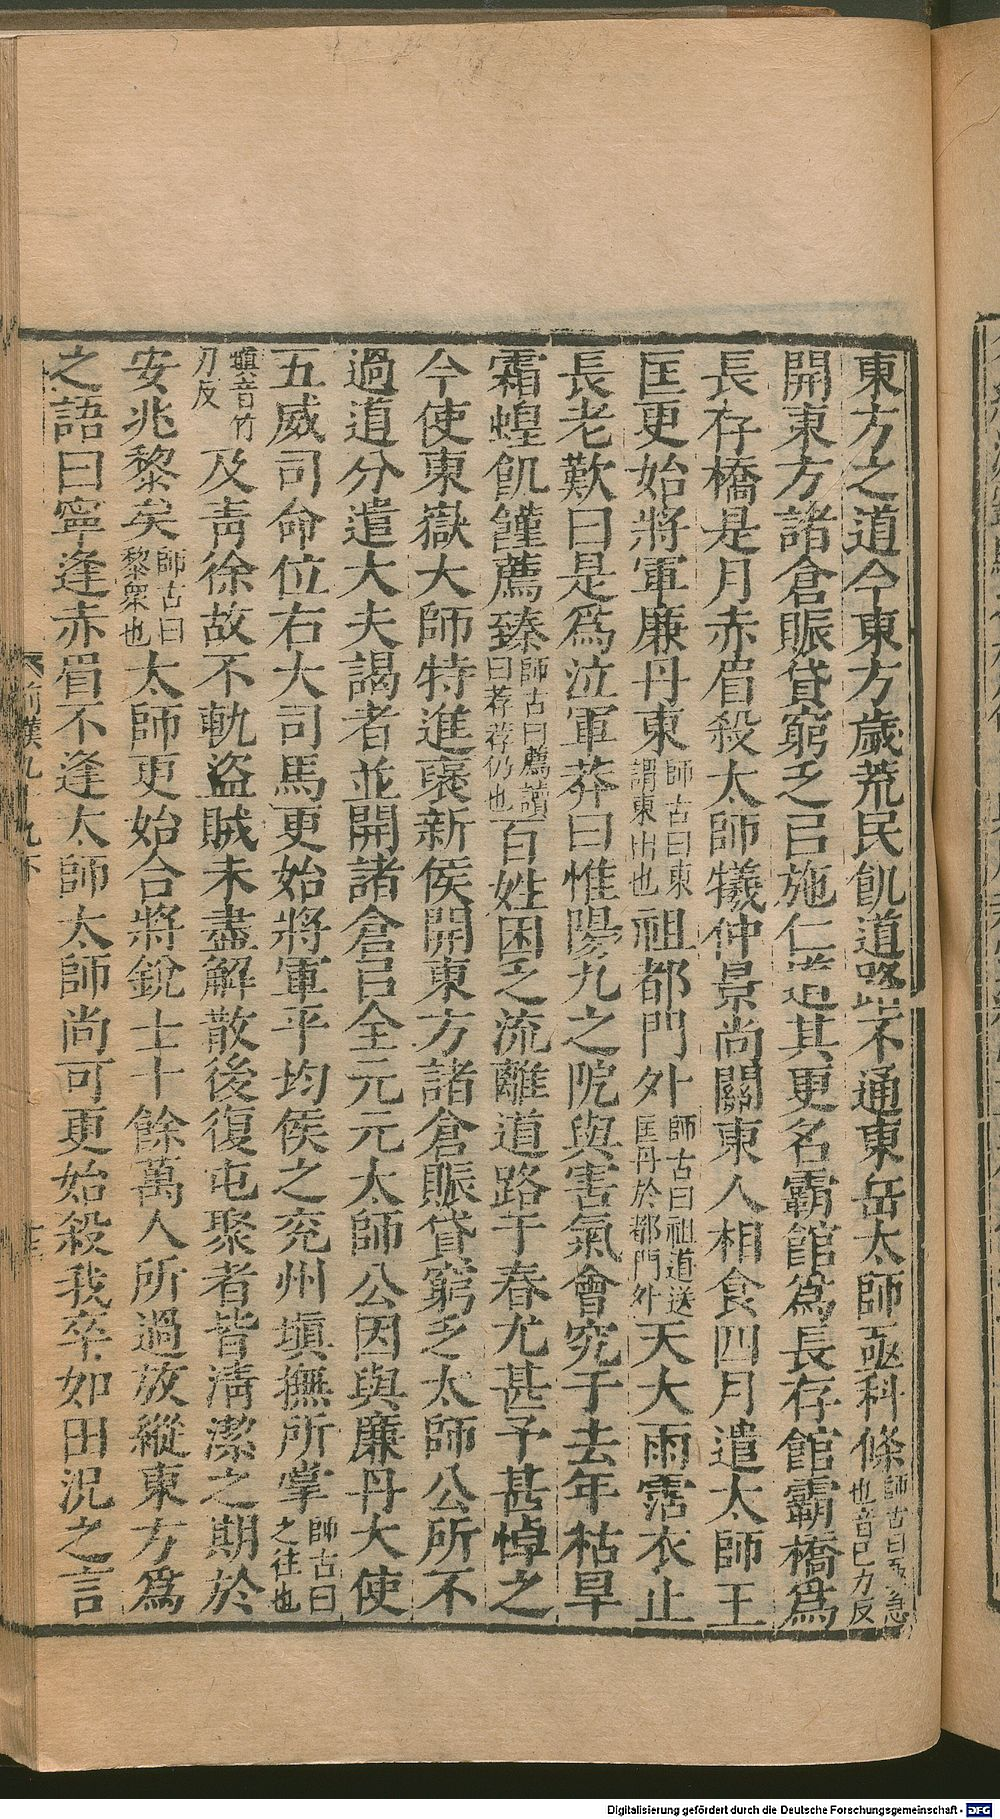 東方之道今東方歲荒民飢道路不通東岳太師亟科條師古曰亟急也音已力反
開東方諸倉賑貸窮乏㠯施仁道其更名霸館爲長存館霸橋爲
長存橋是月赤眉殺太師犧仲景尚關東人相食四月遣太師王
匡更始將軍廉丹東師古曰東謂東出也祖都門外師古曰祖道送匡丹於都門外天大雨霑衣止
長老歎曰是爲泣軍莽曰惟陽九之阸與害氣會究于去年枯旱
霜蝗飢饉薦臻師古曰薦讀曰荐荐仍也百姓困乏流離道路于春尤甚予甚悼之
今使東嶽太師特進褒新侯開東方諸倉賑貸窮乏太師公所不
過道分遣大夫謁者並開諸倉㠯全元元太師公因與廉丹大使
五威司命位右大司馬更始將軍平均侯之兖州塡撫所掌師古曰之往也
塡音竹刃反及靑徐故不軌盜賊未盡解散後復屯聚者皆淸潔之期於
安兆黎矣師古曰黎衆也太師更始合將銳士十餘萬人所過放縱東方爲
之語曰寧逢赤眉不逢太師太師尚可更始殺我卒如田況之言
前漢九十九下
Digitalisierung gefördert durch die Deutsche Forschungsgemeinschaft - DFG